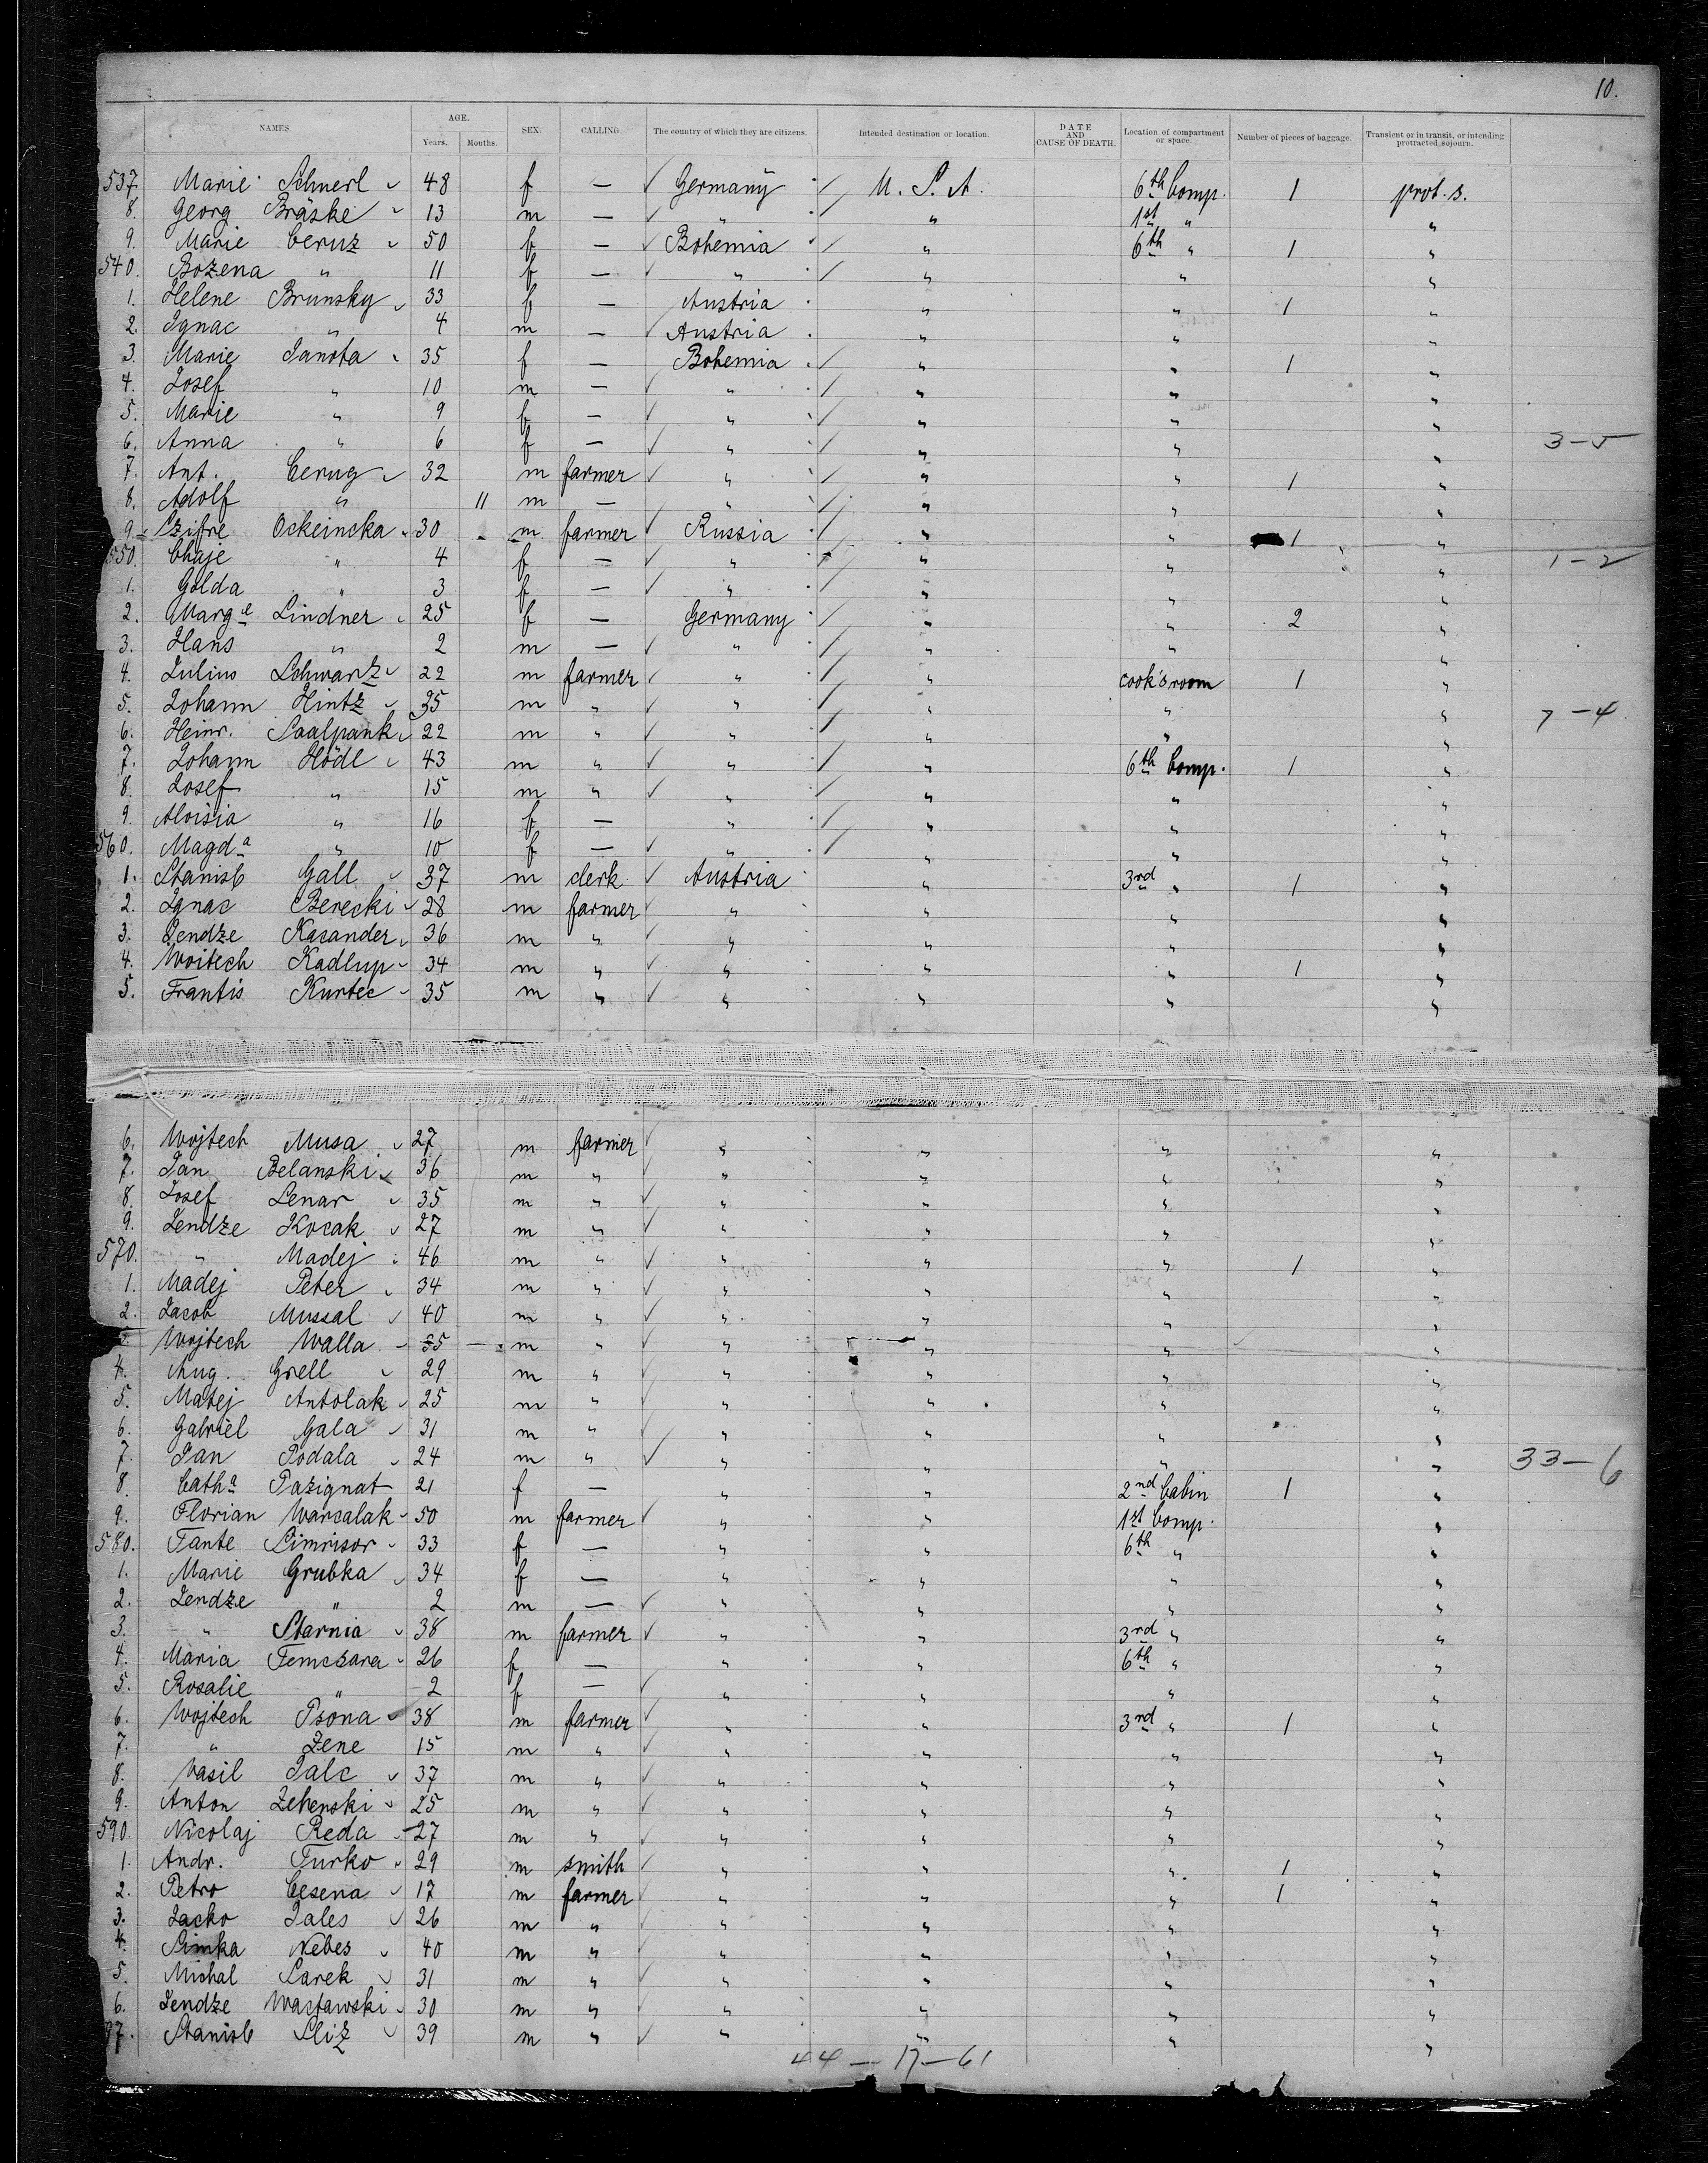 10.
NAMES. AGE. Years. Months. SEX. CALLING. The country of which they are citizens. Intended destination or location. DATE AND CAUSE OF DEATH. Location of compartment or space. Number of pieces of baggage. Transient or in transit, or intending protracted sojourn.
537 Marie Schnerl 48 f — Germany U. S. A. 6th Comp. 1 prot. s.
8. Georg Bräske 13 m — " " 1st " "
9. Marie Ceruz 50 f — Bohemia " 6th " 1 "
540. Bozena " 11 f — " " " "
1. Helene Brunsky 33 f — Austria " " 1 "
2. Ignac " 4 m — Austria " " "
3. Marie Janota 35 f — Bohemia " " 1 "
4. Josef " 10 m — " " " "
5. Marie " 9 f — " " " "
6. Anna " 6 f — " " " " 3-5
7. Ant. Cerug 32 m farmer " " " 1 "
8. Adolf " 11 m — " " " "
9. Szifre Ockeincka 30 m farmer Russia " " 1 "
550. Chaje " 4 f — " " " " 1-2
1. Golda " 3 f — " " " "
2. Marge Lindner 25 f — Germany " " 2 "
3. Hans " 2 m — " " " "
4. Julius Schwartz 22 m farmer " " cook's room 1 "
5. Johann Hintz 35 m " " " " " 7-4
6. Heinr. Saalpank 22 m " " " " "
7. Johann Hödl 43 m " " " 6th Comp. 1 "
8. Josef " 15 m " " " " "
9. Aloisia " 16 f — " " " "
560. Magda " 10 f — " " " "
1. Stanisl Gall 37 m clerk Austria " 3rd " 1 "
2. Ignac Berecki 28 m farmer " " " "
3. Jendze Kasander 36 m " " " " "
4. Woitech Kadlup 34 m " " " " 1 "
5. Frantis Kurtec 35 m " " " " "
6. Wojtech Musa 27 m farmer " " " "
7. Jan Belanski 36 m " " " " "
8. Josef Lenar 35 m " " " " "
9. Jendze Kocak 27 m " " " " "
570. " Madej 46 m " " " " 1 "
1. Madej Peter 34 m " " " " "
2. Jacob Mussal 40 m " " " " "
3. Wojtech Walla 35 — m " " " " "
4. Aug. Grell 29 m " " " " "
5. Matej Antolak 25 m " " " " "
6. Gabriel Gala 31 m " " " " "
7. Jan Podala 24 m " " " " " 33-6
8. Catha Pazignat 21 f — " " 2nd Cabin 1 "
9. Florian Warcalak 50 m farmer " " 1st Comp. "
580. Tante Simrisor 33 f — " " 6th " "
1. Marie Grubka 34 f — " " " "
2. Jendze " 2 m — " " " "
3. " Starnia 38 m farmer " " 3rd " "
4. Maria Temcsara 26 f — " " 6th " "
5. Rosalie " 2 f — " " " "
6. Wojtech Psona 38 m farmer " " 3rd " 1 "
7. " Zene 15 m " " " " "
8. Vasil Jalc 37 m " " " " "
9. Anton Zehenski 25 m " " " " "
590. Nicolaj Reda 27 m " " " " "
1. Andr. Turko 29 m smith " " " 1 "
2. Petro Cesena 17 m farmer " " " 1 "
3. Jacko Jales 26 m " " " " "
4. Simka Nebes 40 m " " " " "
5. Michal Sarek 31 m " " " " "
6. Jendze Wactawski 30 m " " " " "
97. Stanisl Sliz 39 m " " " " "
44 — 17 — 61